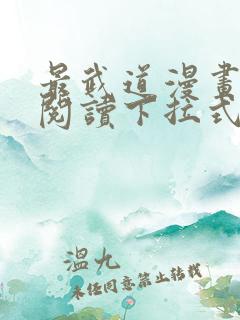 最武道漫畫
閱讀下拉式
溫九
未經同意禁止轉載